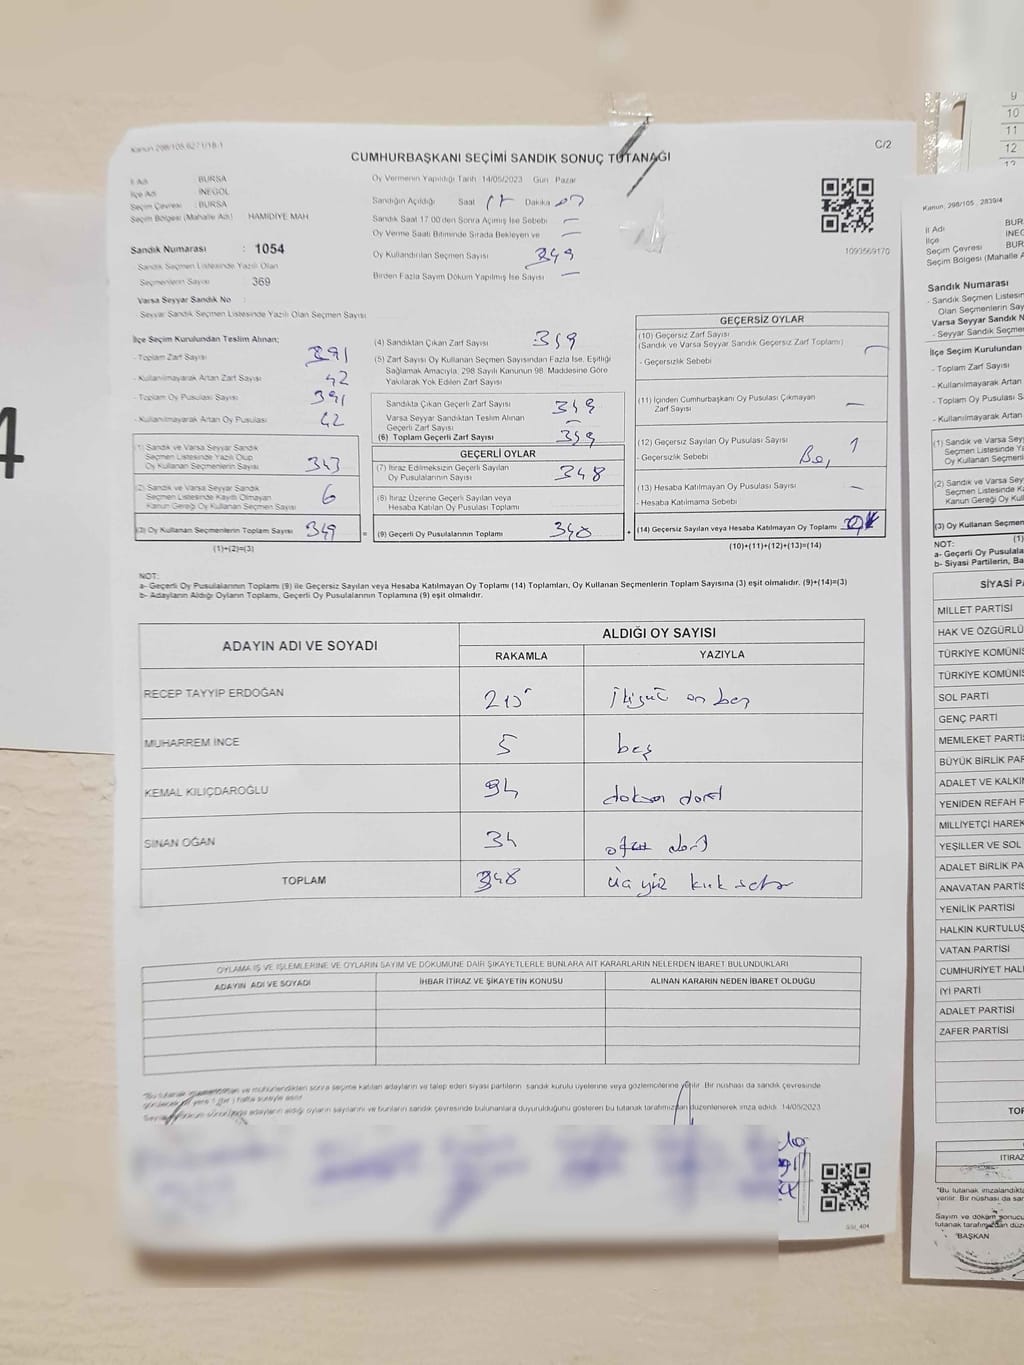 Kanun 298/105 6271/18-1
C/2
CUMHURBAŞKANI SEÇİMİ SANDIK SONUÇ TUTANAĞI
İl Adı : BURSA
İlçe Adı : İNEGÖL
Seçim Çevresi : BURSA
Seçim Bölgesi (Mahalle Adı) : HAMİDİYE MAH
Sandık Numarası : 1054
Sandık Seçmen Listesinde Yazılı Olan
Seçmenlerin Sayısı 369
Varsa Seyyar Sandık No :
- Seyyar Sandık Seçmen Listesinde Yazılı Olan Seçmen Sayısı
Oy Vermenin Yapıldığı Tarih : 14/05/2023 Gün : Pazar
Sandığın Açıldığı Saat 17 Dakika
Sandık Saat 17.00'den Sonra Açılmış İse Sebebi —
Oy Verme Saati Bitiminde Sırada Bekleyen ve —
Oy Kullandırılan Seçmen Sayısı 349
Birden Fazla Sayım Döküm Yapılmış İse Sayısı —
1093569170
İlçe Seçim Kurulundan Teslim Alınan;
- Toplam Zarf Sayısı 391
- Kullanılmayarak Artan Zarf Sayısı 42
- Toplam Oy Pusulası Sayısı 391
- Kullanılmayarak Artan Oy Pusulası 42
(1) Sandık ve Varsa Seyyar Sandık
Seçmen Listesinde Yazılı Olup
Oy Kullanan Seçmenlerin Sayısı 343
(2) Sandık ve Varsa Seyyar Sandık
Seçmen Listesinde Kaydı Olmayan
Kanun Gereği Oy Kullanan Seçmen Sayısı 6
(3) Oy Kullanan Seçmenlerin Toplam Sayısı 349
(1)+(2)=(3)
(4) Sandıktan Çıkan Zarf Sayısı 349
(5) Zarf Sayısı Oy Kullanan Seçmen Sayısından Fazla İse, Eşitliği
Sağlamak Amacıyla, 298 Sayılı Kanunun 98. Maddesine Göre
Yakılarak Yok Edilen Zarf Sayısı
Sandıkta Çıkan Geçerli Zarf Sayısı 349
Varsa Seyyar Sandıktan Teslim Alınan
Geçerli Zarf Sayısı —
(6) Toplam Geçerli Zarf Sayısı 349
GEÇERLİ OYLAR
(7) İtiraz Edilmeksizin Geçerli Sayılan
Oy Pusulalarının Sayısı 348
(8) İtiraz Üzerine Geçerli Sayılan veya
Hesaba Katılan Oy Pusulası Toplamı
= (9) Geçerli Oy Pusulalarının Toplamı 348 +
GEÇERSİZ OYLAR
(10) Geçersiz Zarf Sayısı
(Sandık ve Varsa Seyyar Sandık Geçersiz Zarf Toplamı)
- Geçersizlik Sebebi
(11) İçinden Cumhurbaşkanı Oy Pusulası Çıkmayan
Zarf Sayısı —
(12) Geçersiz Sayılan Oy Pusulası Sayısı 1
- Geçersizlik Sebebi Boş
(13) Hesaba Katılmayan Oy Pusulası Sayısı —
- Hesaba Katılmama Sebebi
(14) Geçersiz Sayılan veya Hesaba Katılmayan Oy Toplamı
(10)+(11)+(12)+(13)=(14)
NOT:
a- Geçerli Oy Pusulalarının Toplamı (9) ile Geçersiz Sayılan veya Hesaba Katılmayan Oy Toplamı (14) Toplamları, Oy Kullanan Seçmenlerin Toplam Sayısına (3) eşit olmalıdır. (9)+(14)=(3)
b- Adayların Aldığı Oyların Toplamı, Geçerli Oy Pusulalarının Toplamına (9) eşit olmalıdır.
ADAYIN ADI VE SOYADI
ALDIĞI OY SAYISI
RAKAMLA YAZIYLA
RECEP TAYYİP ERDOĞAN 215 ikiyüz on beş
MUHARREM İNCE 5 beş
KEMAL KILIÇDAROĞLU 94 doksan dört
SİNAN OĞAN 34 otuz dört
TOPLAM 348 üç yüz kırk sekiz
OYLAMA İŞ VE İŞLEMLERİNE VE OYLARIN SAYIM VE DÖKÜMÜNE DAİR ŞİKAYETLERLE BUNLARA AİT KARARLARIN NELERDEN İBARET BULUNDUKLARI
ADAYIN ADI VE SOYADI İHBAR İTİRAZ VE ŞİKAYETİN KONUSU ALINAN KARARIN NEDEN İBARET OLDUĞU
"Bu tutanak imzalandıktan ve mühürlendikten sonra seçime katılan adayların ve talep eden siyasi partilerin sandık kurulu üyelerine veya gözlemcilerine verilir. Bir nüshası da sandık çevresinde
görülecek bir yere 1 (bir) hafta süreyle asılır.
Sayım ve döküm sonucunda adayların aldığı oyların sayılarını ve bunların sandık çevresinde bulunanlara duyurulduğunu gösteren bu tutanak tarafımızdan düzenlenerek imza edildi. 14/05/2023
SSI_404
4
9
10
11
12
13
Kanun, 298/105 , 2839/4
İl Adı BUR
İlçe İNEG
Seçim Çevresi BUR
Seçim Bölgesi (Mahalle A
Sandık Numarası
- Sandık Seçmen Listesin
Olan Seçmenlerin Say
Varsa Seyyar Sandık N
- Seyyar Sandık Seçme
İlçe Seçim Kurulundan
- Toplam Zarf Sayısı
- Kullanılmayarak Artan
- Toplam Oy Pusulası S
- Kullanılmayarak Artan
(1) Sandık ve Varsa Seyy
Seçmen Listesinde Ya
Oy Kullanan Seçmenl
(2) Sandık ve Varsa Sey
Seçmen Listesinde K
Kanun Gereği Oy Ku
(3) Oy Kullanan Seçmen
(1)
NOT:
a- Geçerli Oy Pusulala
b- Siyasi Partilerin, Ba
SİYASİ PA
MİLLET PARTİSİ
HAK VE ÖZGÜRLÜ
TÜRKİYE KOMÜNİS
TÜRKİYE KOMÜNİS
SOL PARTİ
GENÇ PARTİ
MEMLEKET PARTİS
BÜYÜK BİRLİK PAR
ADALET VE KALKIN
YENİDEN REFAH P
MİLLİYETÇİ HAREK
YEŞİLLER VE SOL
ADALET BİRLİK PA
ANAVATAN PARTİS
YENİLİK PARTİSİ
HALKIN KURTULUŞ
VATAN PARTİSİ
CUMHURİYET HAL
İYİ PARTİ
ADALET PARTİSİ
ZAFER PARTİSİ
TOP
İTİRAZ
"Bu tutanak imzalandıkta
verilir. Bir nüshası da san
Sayım ve döküm sonucu
tutanak tarafımızdan düze
BAŞKAN